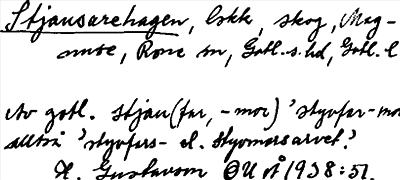 Stjausarehagen, lokk, skog, Mag-
nuse, Rone sn, Gotl. s. hd, Gotl. l
Av gotl. stjau(far, -mor) 'styvfar-mor
alltså 'styvfars- el. styvmorsarvet'.
H. Gustavson OUÅ 1938:51.